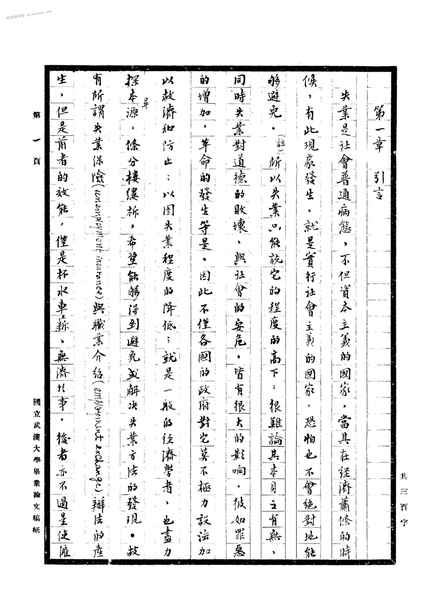 第一章 引言
失業是社會普通病態,不但資本主義的國家,當其在經濟蕭條的時
候,有此現象發生,就是實行社會主義的國家,恐怕也不會絕對地能
夠避免。(註一)所以失業只能説它的程度的高下,很難論其本身之有無,
同時失業對道德的敗壞,與社會的安危,皆有很大的影响,彼如罪惡
的增加,革命的發生等是。因此不僅各國的政府對它莫不極力設法加
以救濟和防止;以圖失業程度的降低;就是一般的經濟學者,也盡力
探本尋源,條分縷析,希望能夠得到避免並解決失業方法的發現。故
有所謂失業保險(unemployment insurance)與職業介紹(employment exchange)辦法的產
生,但是前者的效能,僅是杯水車薪,無濟於事,後者亦不過是使雇
第一頁
國立武漢大學畢業論文稿紙
共三百字